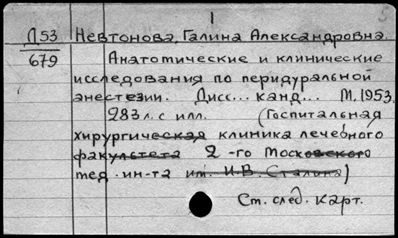 1
Д53 Невтонова, Галина Александровна.
679 Анатомические и клинические
исследования по перидуральной
анестезии. Дисс... канд... М. 1953.
283 л. с илл. (Госпитальная
хирургическая клиника лечебного
факультета 2-го Московского
мед. ин-та им. И.В. Сталина)
См. след. карт.